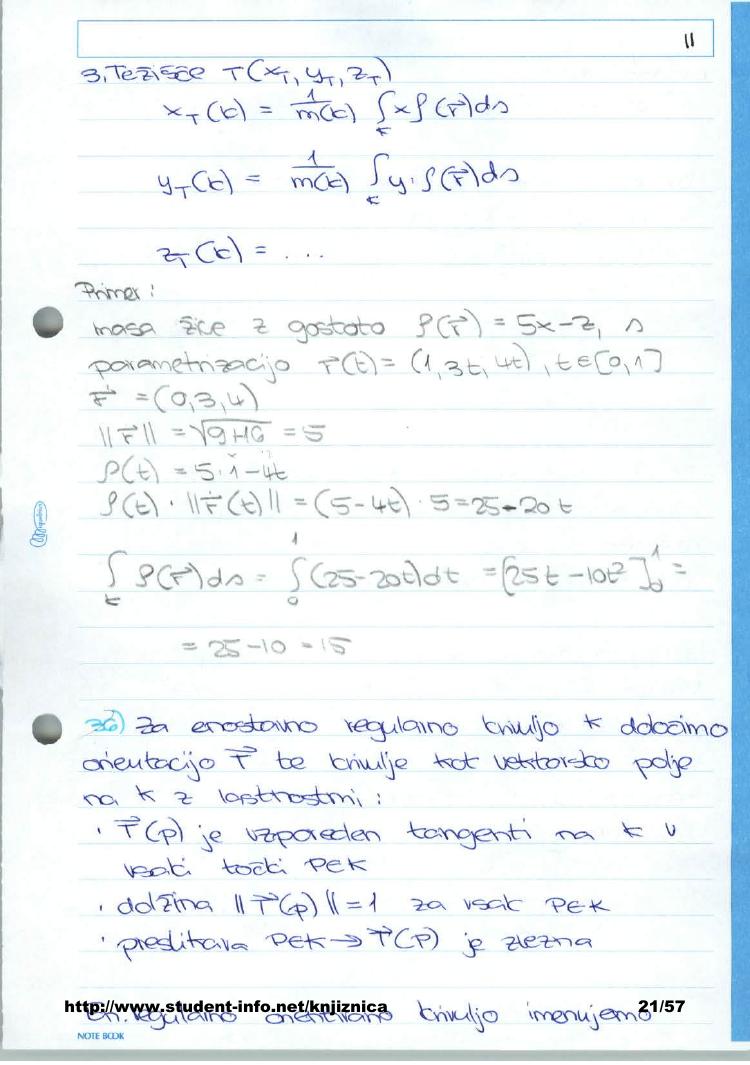 11
3. Težišče T(x_T, y_T, z_T)
x_T(k) = 1/m(k) ∫_k xρ(r⃗)ds
y_T(k) = 1/m(k) ∫_k y·ρ(r⃗)ds
z_T(k) = ...
Primer:
masa žice z gostoto ρ(r⃗) = 5x-z, s
parametrizacijo r⃗(t) = (1, 3t, 4t), t∈[0,1]
ṙ⃗ = (0,3,4)
||ṙ⃗|| = √9+16 = 5
ρ(t) = 5·1-4t
ρ(t)·||ṙ⃗(t)|| = (5-4t)·5 = 25-20t
∫_k ρ(r⃗)ds = ∫_0^1 (25-20t)dt = [25t-10t²]_0^1 =
= 25-10 = 15
36) Za enostavno regularno krivuljo k določimo
orientacijo T⃗ te krivulje kot vektorsko polje
na k z lastnostmi:
· T⃗(p) je vzporeden tangenti na k v
vsaki točki P∈K
· dolžina ||T⃗(p)|| = 1 za vsak P∈K
· preslikava P∈K → T⃗(P) je zvezna
http://www.student-info.net/knjiznica 21/57
En. regularno orientirano krivuljo imenujemo
NOTE BOOK